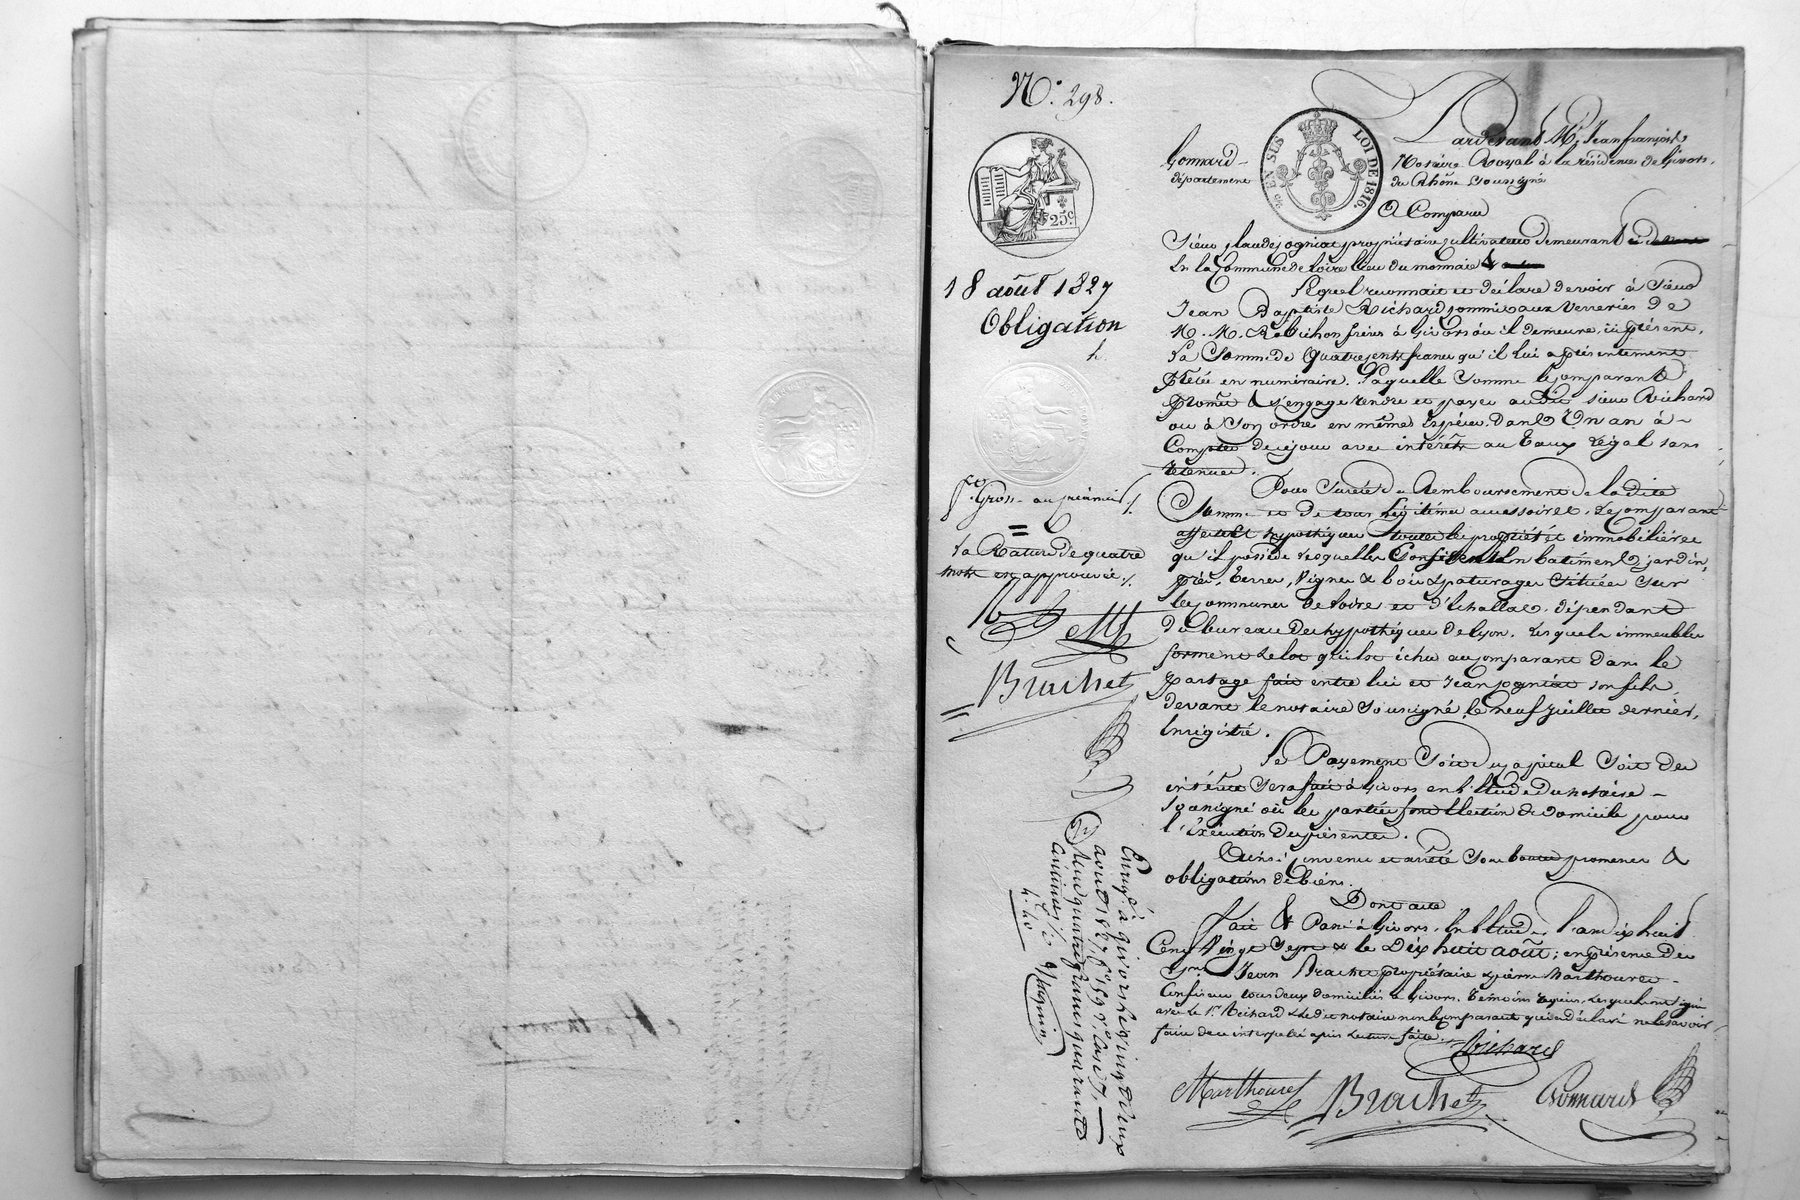 N.° 298.
25.c
18 août 1827
Obligation
EN SUS
LOI DE 1816.
Pardevant M.e Jean françois
Gonnard Notaire Royal à la résidence de Givors,
département du Rhône soussigné
A Comparu
Sieur Claude jogniat propriétaire cultivateur demeurant
En la Commune de Loire lieu du monnaie &
Lequel reconnait et déclare devoir à Sieur
Jean Baptiste Richard commis aux Verreries de
M. M. Robichon frères à Givors où il demeure, ici présent,
La Somme de Quatre cents francs qu'il lui a présentement
Prêtée en numéraire. Laquelle Somme le comparant
promet & s'engage rendre et payer audit sieur Richard
ou à Son ordre en mêmes Espèces, Dans Un an à
Compter de ce jour avec intérêts au Taux Légal sans
retenue.
Pour Sureté du Remboursement de la dite
Somme et de tous légitimes accessoires, Le comparant
affecte et hypothèque toutes les propriétés immobilières
qu'il possède lesquelles Consistent En batiment, jardin,
pré, Terres, Vignes & bois & paturages Situées sur
les communes de Loire et d'Echallas, dépendant
du bureau des hypothèques de Lyon, Lesquels immeubles
forment Le lot échu au comparant dans le
partage fait entre lui et Jean jogniat son fils
devant le notaire Soussigné le neuf juillet dernier,
Enregistré.
Le Payement Soit du capital Soit des
intérêts sera fait à Givors en l'Etude du notaire
Soussigné où les parties font Election de domicile pour
l'Exécution des présentes.
Ainsi convenu et arrêté Sous toutes promesses &
obligations de biens.
Dont acte
fait & Passé à Givors, En l'Etude L'an dix huit
Cent Vingt Sept & le Dix huit août; en présence des
Jean Brachet propriétaire & pierre Marthouret
Confiseur tous deux domiciliés à Givors, Témoins requis, Lesquels ont signé
avec Le S.r Richard & le dit notaire non le comparant qui a déclaré ne le savoir
faire de ce interpellé après Lecture faite.
Richard
Marthouret Brachet Gonnard
Gross. au premier
La Rature de quatre
mots est approuvée
Brachet
Enreg.é à givors le vingt deux
août 1827 f.° 159 r.° case 7,
Reçu quatre francs quarante
centimes